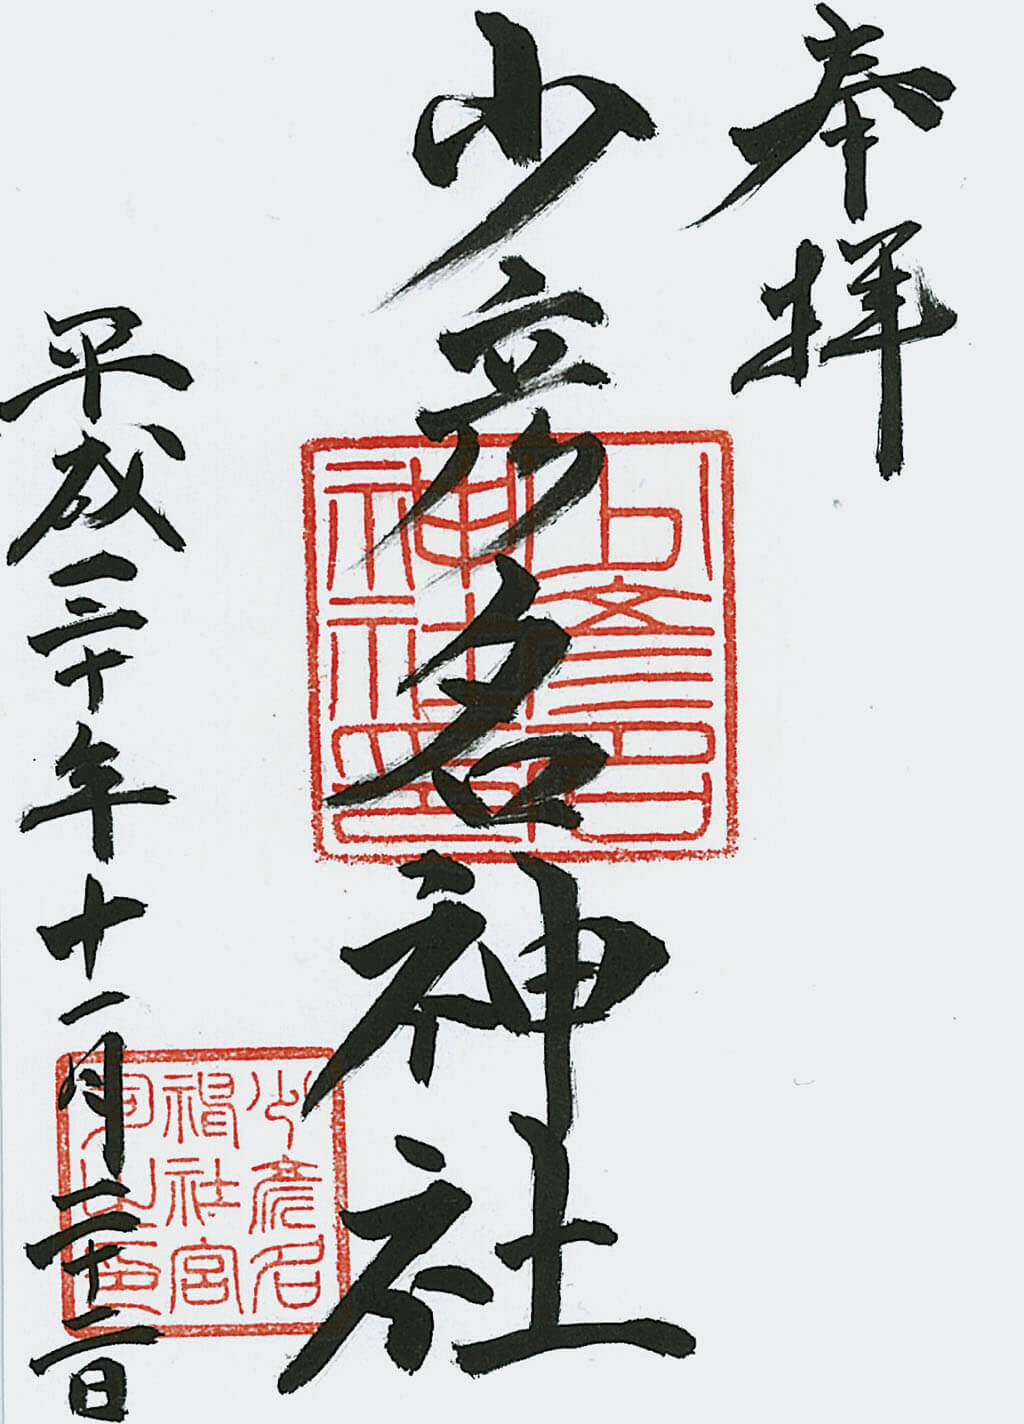 奉拝
少彦名神社
平成三十年十一月二十二日
少彦名
神社印
少彦名
神社宮
司之印